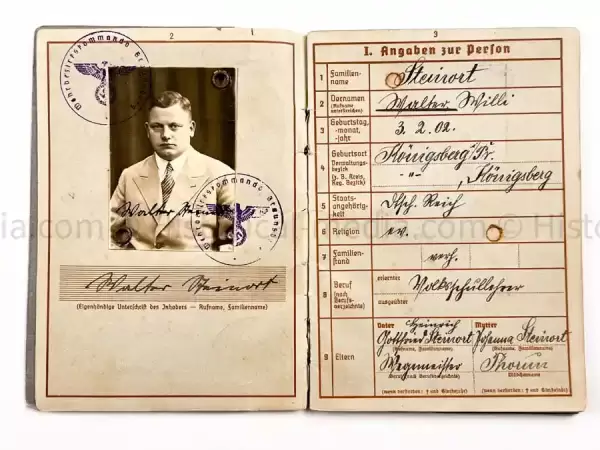 2
Wehrbezirkskommando Bra
Walter Stein
Wehrbezirkskommando Braunsb
Walter Steinort
(Eigenhändige Unterschrift des Inhabers — Rufname, Familienname)
3
I. Angaben zur Person
1 Familien-
name
Steinort
2 Vornamen
(Rufname
unterstreichen)
Walter Willi
3 Geburtstag,
-monat,
-jahr
3. 2. 02.
4 Geburtsort
Verwaltungs-
bezirk
(z. B. Kreis,
Reg. Bezirk)
Königsberg/Pr.
-"- , Königsberg
5 Staats-
angehörig-
keit
Dtsch. Reich
6 Religion
ev.
7 Familien-
stand
verh.
8 Beruf
(nach
Berufs-
verzeichnis)
erlernter
Volksschullehrer
ausgeübter
9 Eltern
Vater Heinrich
Gottfried Steinort
(Rufname, Familienname)
Wegemeister
(Beruf nach Berufsverzeichnis)
(wenn verstorben: † und Sterbejahr)
Mutter
Johanna Steinort
(Rufname, Familienname)
Thorun
(Mädchenname)
(wenn verstorben: † und Sterbejahr)